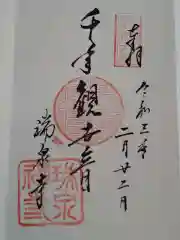 奉拝
令和三年
二月廿二日
千手観世音
瑞泉寺